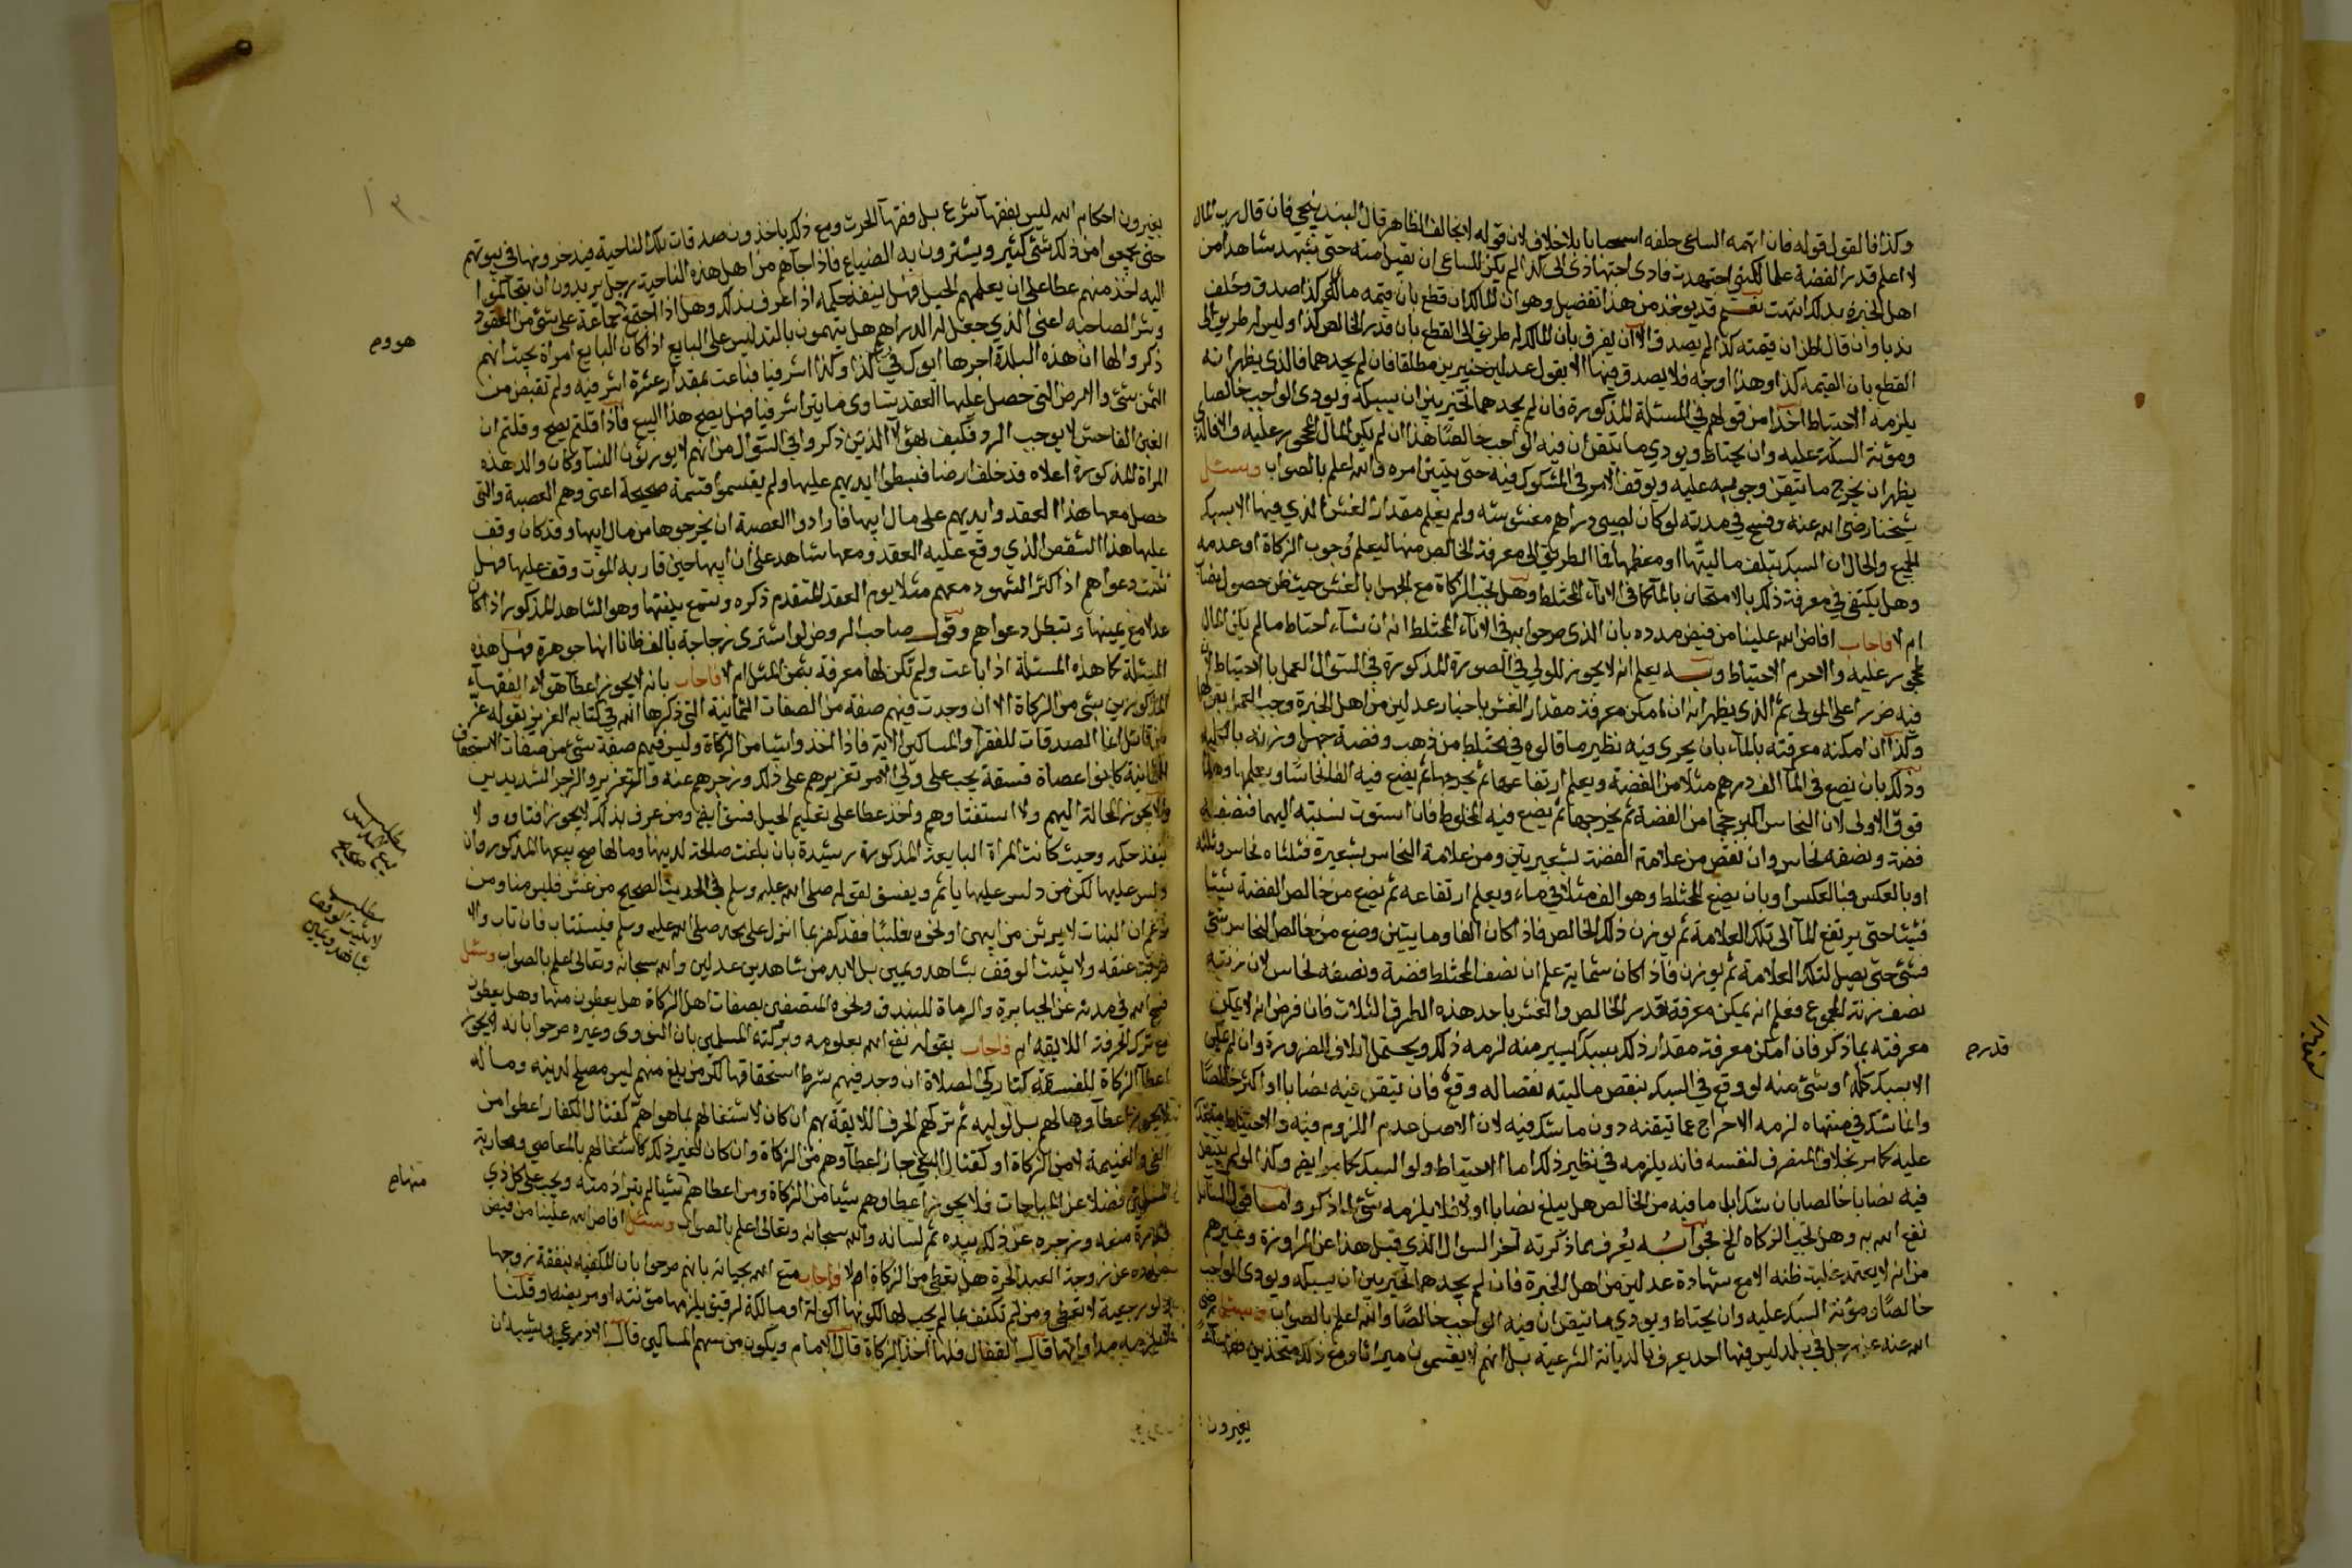 وكذا فالقول قوله فان اتهمه الساعي حلفه استحبابا بلا خلاف لان قوله لا يخالف الظاهر قال البندنيجي فان قال رب المال
لا اعلم قدر الفضة علما لكني اجتهدت فادى اجتهادى الى كذا لم يكن للساعي ان يقبل منه حتى يشهد شاهدا من
اهل الخبرة بذلك انتهت نعم قد يوخذ من هذا تفصيل وهو ان المالك ان قطع بان قيمه ماله كذا صدق وحلف
ندبا وان قال اظن ان قيمته كذا لم يصدق الا ان يفرق بان المالك له طريق الى القطع بان قدر الخالص كذا وليس له طريق الى
القطع بان القيمة كذا وهذا اوجه فلا يصدق فيها الا بقول عدلين خبيرين مطلقا فان لم يجدهما فالذى يظهر انه
يلزمه الاحتياط اخذا من قولهم في المسئلة المذكورة فان لم يجدهما تخير بين ان يسبكه ويودى الواجب خالصا
ومؤنة السبك عليه وان يحتاط ويودي ما يتيقن ان فيه الواجب خالصا هذا ان لم يكن المال لمحجور عليه والا فالذي
يظهر ان يخرج ما تيقن وجوبه عليه ويوقف الامر في المشكوك فيه حتى يتبين امره والله اعلم بالصواب وسئل
شيخنا رضى الله عنه وفسح في مدته لو كان لصبي دراهم مغشوشه ولم يعلم مقدار الغش الذي فيها الا بسبك
الجميع والحال ان السبك يتلف ماليتها او معظمها فما الطريق الى معرفة الخالص منها ليعلم وجوب الزكاة او عدمه
وهل يكتفى في معرفة ذلك بالامتحان بالماء كما في الاناء المختلط وهل تجب الزكاة مع الجهل بالغش حيث ظن حصول نصاب
ام لا فاجاب افاض الله علينا من فيض مدده بان الذى صرحوا به في الاناء المختلط انه ان شاء احتاط ما لم يكن المال
لمحجور عليه والا حرم الاحتياط وبه يعلم انه لا يجوز للولي في الصورة المذكورة في السوال العمل بالاحتياط لان
فيه ضررا على المولى ثم الذى يظهر انه ان امكن معرفة مقدار الغش باخبار عدلين من اهل الخبرة وجب العمل بقولهما
وكذا ان امكنه معرفته بالماء بان يجرى فيه نظير ما قالوه في مختلط من ذهب وفضة جهل وزنه بالكليه
وذلك بان يضع في الماء الف درهم مثلا من الفضة ويعلم ارتفاعها ثم يخرجها ثم يضع فيه الفا نحاسا ويعلمها وهذه
فوق الاولى لان النحاس اكبر حجما من الفضة ثم يخرجها ثم يضع فيه المخلوط فان استوت نسبته اليهما فنصفه
فضة ونصفه نحاس وان نقص من علامة الفضة بشعيرتين ومن علامة النحاس بشعيرة فثلثاه نحاس وثلثه
او بالعكس فبالعكس او بان يضع المختلط وهو الف مثلا في ماء ويعلم ارتفاعه ثم يضع من خالص الفضة شيئا
فشيئا حتى يرتفع الماء الى تلك العلامة ثم يوزن ذلك الخالص فاذا كان الفا ومايتين وضع من خالص النحاس شئ
فشئ حتى يصل لتلك العلامة ثم يوزن فاذا كان ثمانماية علم ان نصف المختلط فضة ونصفه نحاس لان زنته
نصف زنة المجموع فعلم انه يمكن معرفة قدر الخالص والغش باحد هذه الطرق الثلاث فان فرض انه لا يمكن
معرفته بما ذكر فان امكن معرفة مقدار ذلك بسبك يسير منه لزمه ذلك ويحتمل اتلافه للضرورة وان لم يمكن
الا بسبك كله او شئ منه لو وقع في السبك ينقص ماليته نقصا له وقع فان تيقن فيه نصابا او اكثر خالصا
وانما شك في منتهاه لزمه الاخراج عما تيقنه دون ما شك فيه لان الاصل عدم اللزوم فيه والاحتياط متعذر
عليه كما مر بخلاف المتصرف لنفسه فانه يلزمه في نظير ذلك اما الاحتياط ولو السبك كما مر ايضا وكذا لو لم يتيقن
فيه نصابا خالصا بان شك ابل ما فيه من الخالص هل يبلغ نصابا او لا فلا يلزمه شئ لما ذكر واما قول السايل
نفع الله به وهل تجب الزكاه الخ فجوابه يعرف مما ذكرته آخر السوال الذي قبل هذا عن المراوزة وغيرهم
من انه لا يعتمد غلبة ظنه الا مع شهادة عدلين من اهل الخبرة فان لم يجدهما تخير بين ان يسبكه ويودى الواجب
خالصا ومؤنة السبك عليه وان يحتاط ويودي ما يتيقن ان فيه الواجب خالصا والله اعلم بالصواب وسئل رضي
الله عنه عن رجل في بلد ليس فيها احد يعرف بالديانة الشرعية بل انهم لا يقسمون ميراثا ومع ذلك متخذين
يغيرون
قدرهم
يغيرون احكام الله ليس بفقهاء شرع بل فقهاء الحرث ومع ذلك ياخذون صدقات تلك الناحية فيدخرونها في بيوتهم
حتى يجمعوا من ذلك شئ كثير ويشترون به الضياع فاذا جآهم من اهل هذه الناحية رجل يريدون ان يتحاكموا
اليه اخذ منهم عطا على ان يعلمهم الحيل فهل ينفذ حكمه اذا عرف بذلك وهل اذا اجتمع جماعة على شئ من العقود
وشر الصاحبه اعنى الذي جعل له الدراهم هل يتهمون بالتدليس على البايع اذا كان البايع امراة بحيث انهم
ذكروا لها ان هذه البلدة اجرها ابوك في كذا وكذا اشرفيا فباعت بمقدار عشرة اشرفيه ولم تقبض من
الثمن شئ والارض التي حصل عليها العقد تساوى مايتين اشرفيا فهل يصح هذا البيع فاذا قلتم يصح وقلتم ان
الغبن الفاحش لا يوجب الرد فكيف بهؤلاء الذين ذكروا في السؤال من انهم لا يورثون النسآ وكان والد هذه
المراة المذكورة اعلاه قد خلف ارضا فبسطوا ايديهم عليها ولم يقتسموا قسمة صحيحة اعنى وهم العصبة والتي
حصل معها هذا العقد وايديهم على مال ابيها فارادوا العصبة ان يخرجوها من مال ابيها وقد كان وقف
عليها هذا الشقص الذي وقع عليه العقد ومعها شاهد على ان ابيها حين قاربه الموت وقف عليها فهل
تثبت دعواهم اذا كثر الشهود معهم مثلا يوم العقد المتقدم ذكره وتسمع بينتها وهو الشاهد المذكور اذا كان
عدلا مع يمينها وتبطل دعواهم وقول صاحب الروض لو اشترى زجاجة بالف ظانا انها جوهرة فهل هذه
المسئلة كهذه المسئلة اذا باعت ولم تكن لها معرفة بثمن المثل ام لا فاجاب بانه لا يجوز اعطآ هؤلاء الفقهآء
المذكورين شئ من الزكاة الا ان وجدت فيهم صفة من الصفات الثمانية التي ذكرها الله في كتابه العزيز بقوله عز
من قائل انما الصدقات للفقرآ والمساكين الآية فاذا اخذوا شيا من الزكاة وليس فيهم صفة شئ من صفات الاستحقاق
الثمانية كانوا عصاة فسقة يجب على ولي الامر تعزيرهم على ذلك وزجرهم عنه والتعزير والزجر الشديدين
ولا يجوز الحالة اليهم ولا استفتاوهم واخذ عطا على تعليم الحيل فسق ايضا ومن عرف بذلك لا يجوز افتاوه ولا
ينفذ حكمه وحيث كانت المراة البايعة المذكورة رشيدة بان بلغت صالحة لدينها ومالها صح بيعها المذكور وان
دلس عليها لكن من دلس عليها ياثم ويفسق لقوله صلى الله عليه وسلم في الحديث الصحيح من غش فليس منا ومن
زعم ان البنات لا يرثن من ابيهن او نحوه فقد كفر بما انزل على محمد صلى الله عليه وسلم فيستتاب فان تاب والا
ضربت عنقه ولا يثبت الوقف بشاهد ويمين بل لا بد من شاهدين عدلين والله سبحانه وتعالى اعلم بالصواب وسئل
فسح الله في مدته عن الجبابرة والرماة للبندق ونحوه المتصفين بصفات اهل الزكاة هل يعطون منها وهل يعطون
مع ترك الحرفة اللايقه ام فاجاب بقوله نفع الله بعلومه وبركته المسلمين بان النووى وغيره صرحوا بانه لا يجوز
اعطآ الزكاة للفسقة كتاركي الصلاة ان وجد فيهم شرط استحقاقها لكن من بلغ منهم ليس مصلح لدينه وماله
لا يجوز اعطآوها لهم بل لوليه ثم تركهم الحرف اللايقة بهم ان كان لاشتغالهم بما هو اهم كقتال الكفار اعطوا من
الفئ والغنيمة لا من الزكاة او كقتال البغي جاز اعطآوهم من الزكاة وان كان لغير ذلك كاشتغالهم بالمعاصي ومحاربة
المسلمين فضلا عن المباحات فلا يجوز اعطاوهم شيئا من الزكاة ومن اعطاهم شيئا لم تبرا ذمته ويجب على كل ذي
قدرة منعه وزجره عن ذلك بيده ثم لسانه والله سبحانه وتعالى اعلم بالصواب وسئل افاض الله علينا من فيض
مدده عن زوجة العبد الحرة هل تعطى من الزكاة ام لا فاجاب متع الله بحياته بانهم صرحوا بان المكفيه بنفقة زوجها
ولو رجعية لا تعطى ومن لم تكتف بما لم يجب لها لكونها اكولة او مالكة لرقيق يلزمها مؤنته او مريضه وقلنا
لا يلزمه مداواتها قال القفال فلها اخذ الزكاة قال الامام ويكون من سهم المساكين قال الاذرعي ويشبه ان
هووم
مطلب
بيع المدلس
صحيح
مطلب
لا يثبت الوقف
بشاهد ويمين
منهاهم